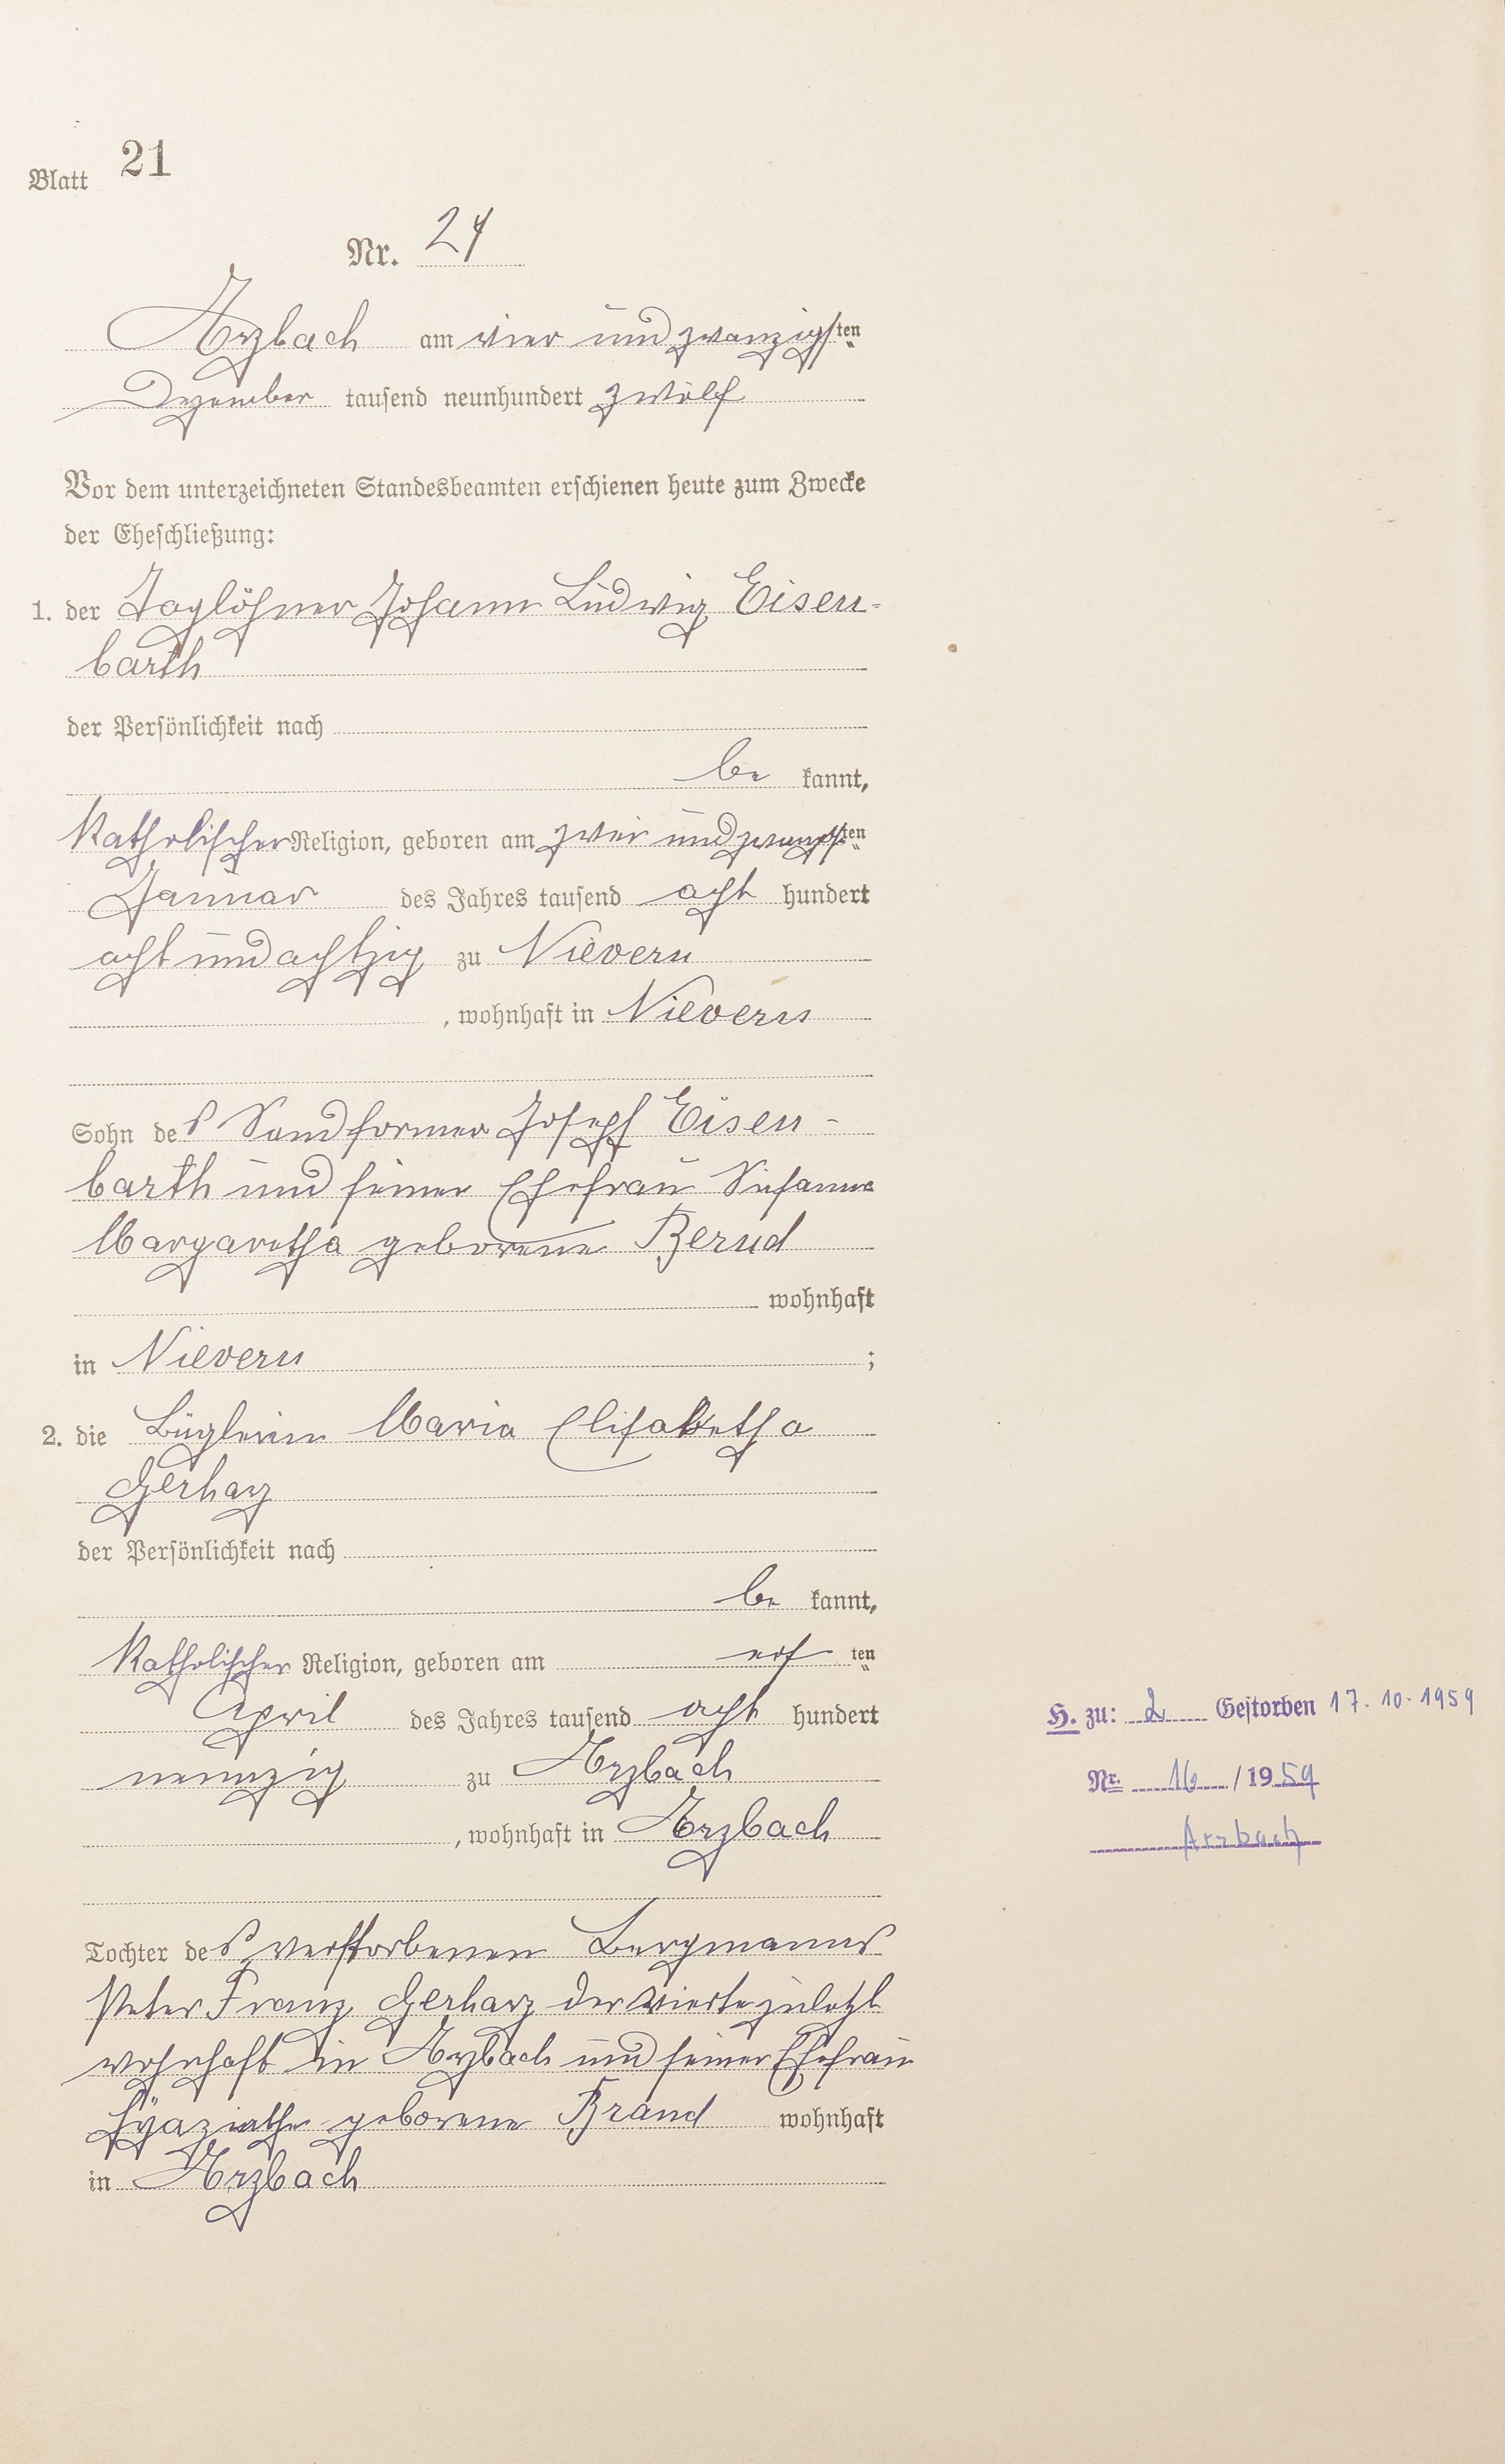 Blatt 21
Nr. 24
Arzbach am vier und zwanzigsten
Dezember tausend neunhundert zwölf
Vor dem unterzeichneten Standesbeamten erschienen heute zum Zwecke
der Eheschließung:
1. der Taglöhner Johann Ludwig Eisen-
barth
der Persönlichkeit nach
be kannt,
Katholischer Religion, geboren am zwei und zwanzigsten
Januar des Jahres tausend acht hundert
acht und achtzig zu Nievern
, wohnhaft in Nievern
Sohn des Sandformer Joseph Eisen-
barth und seiner Ehefrau Susanna
Margaretha geborene Bernd
wohnhaft
in Nievern ;
2. die Büglerin Maria Elisabetha
Gerharz
der Persönlichkeit nach
be kannt,
Katholischer Religion, geboren am ten
April des Jahres tausend acht hundert
neunzig zu Arzbach
, wohnhaft in Arzbach
Tochter des verstorbenen Bergmanns
Peter Franz Gerharz der vierte zuletzt
wohnhaft in Arzbach und seiner Ehefrau
geborene Brand wohnhaft
in Arzbach
H. zu: 2 Gestorben 17.10.1959
Nr. 16 / 1959
Arzbach